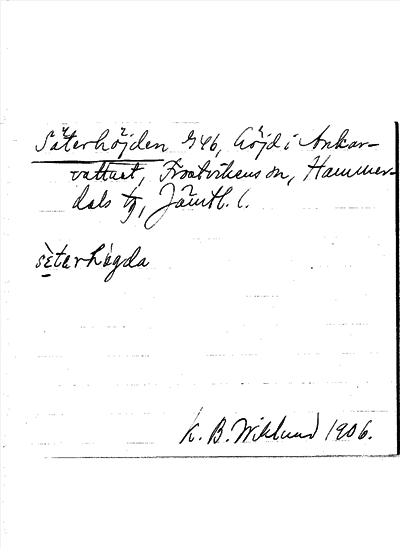 Säterhöjden G46, höjd i Ankar-
vattnet, Frostvikens sn, Hammer-
dals tg, Jämtl. l.
sètarhögda
K. B. Wiklund 1906.